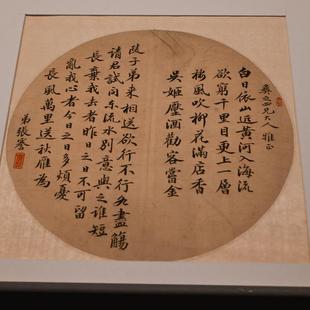 兄大人雅正
白日依山近黃河入海流
欲窮千里目更上一層
樓風吹柳花滿店香
吳姬壓酒勸客嘗金
陵子弟來相送欲行不行各盡觴
請君試問東流水別意與之誰短
長棄我去者昨日之日不可留
亂我心者今日之日多煩憂
長風萬里送秋雁為
弟張